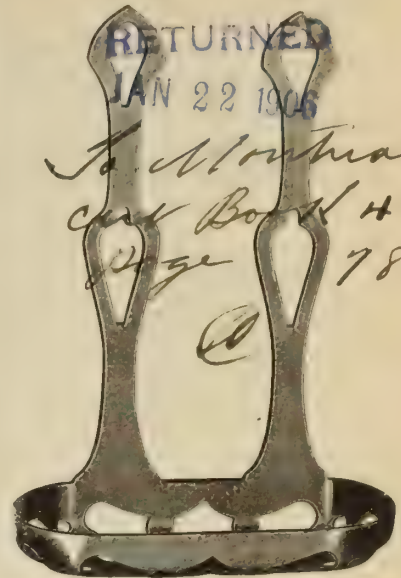 RETURNED
JAN 22 1906
To Montrea
cut Book 4
Page 78